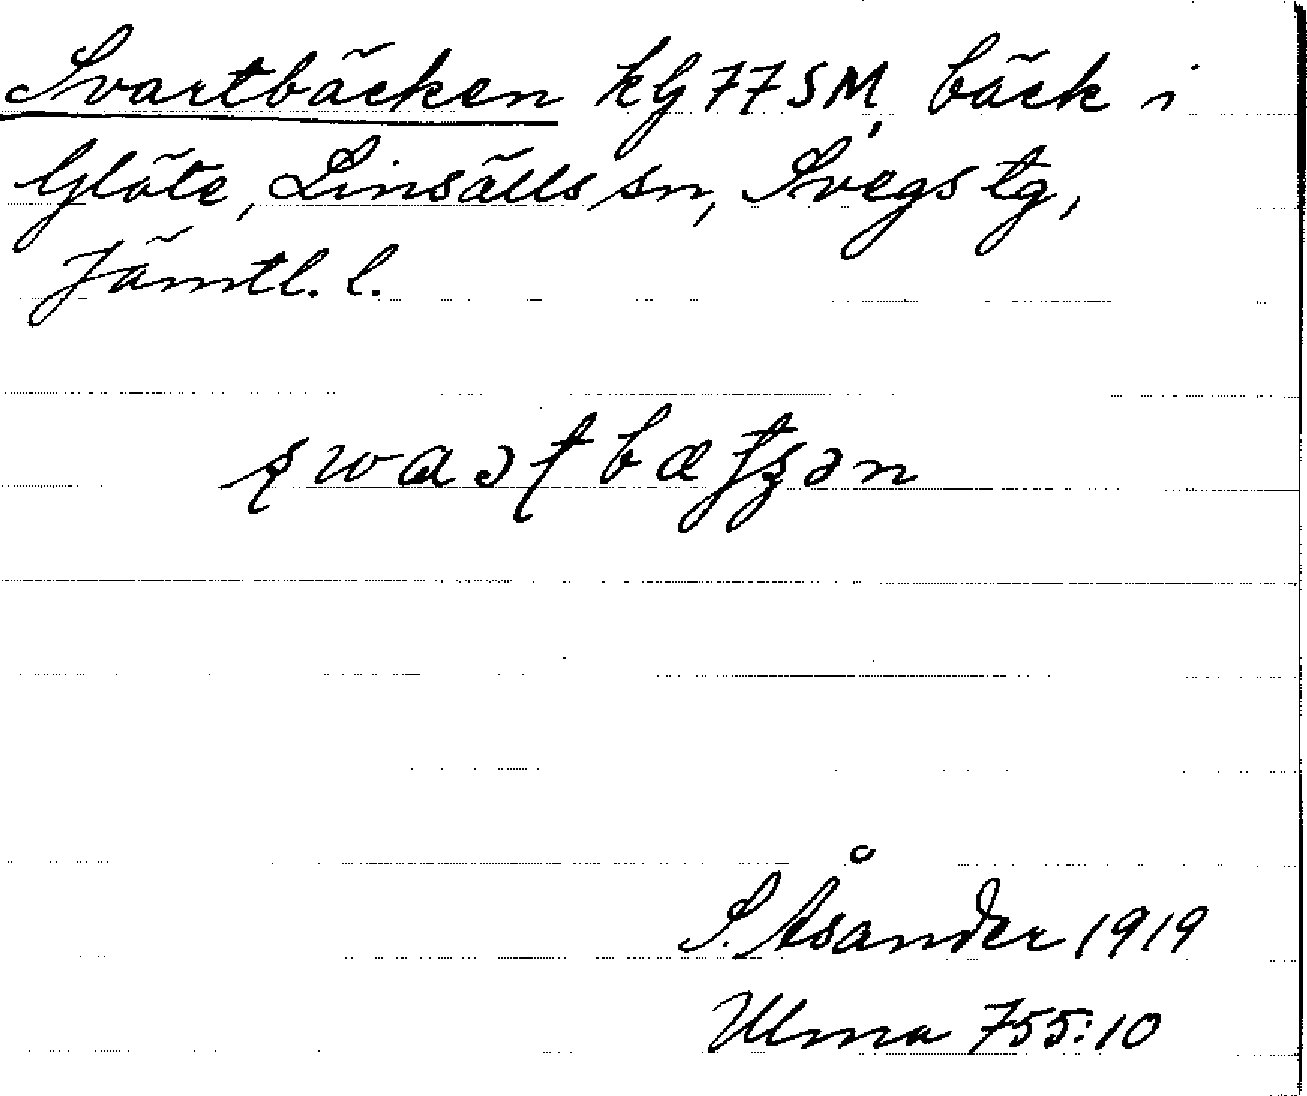 Svartbäcken kG 77 SM, bäck i
Glöte, Linsälls sn, Svegs tg,
Jämtl. l.
S. Åsander 1919
Ulma 755:10